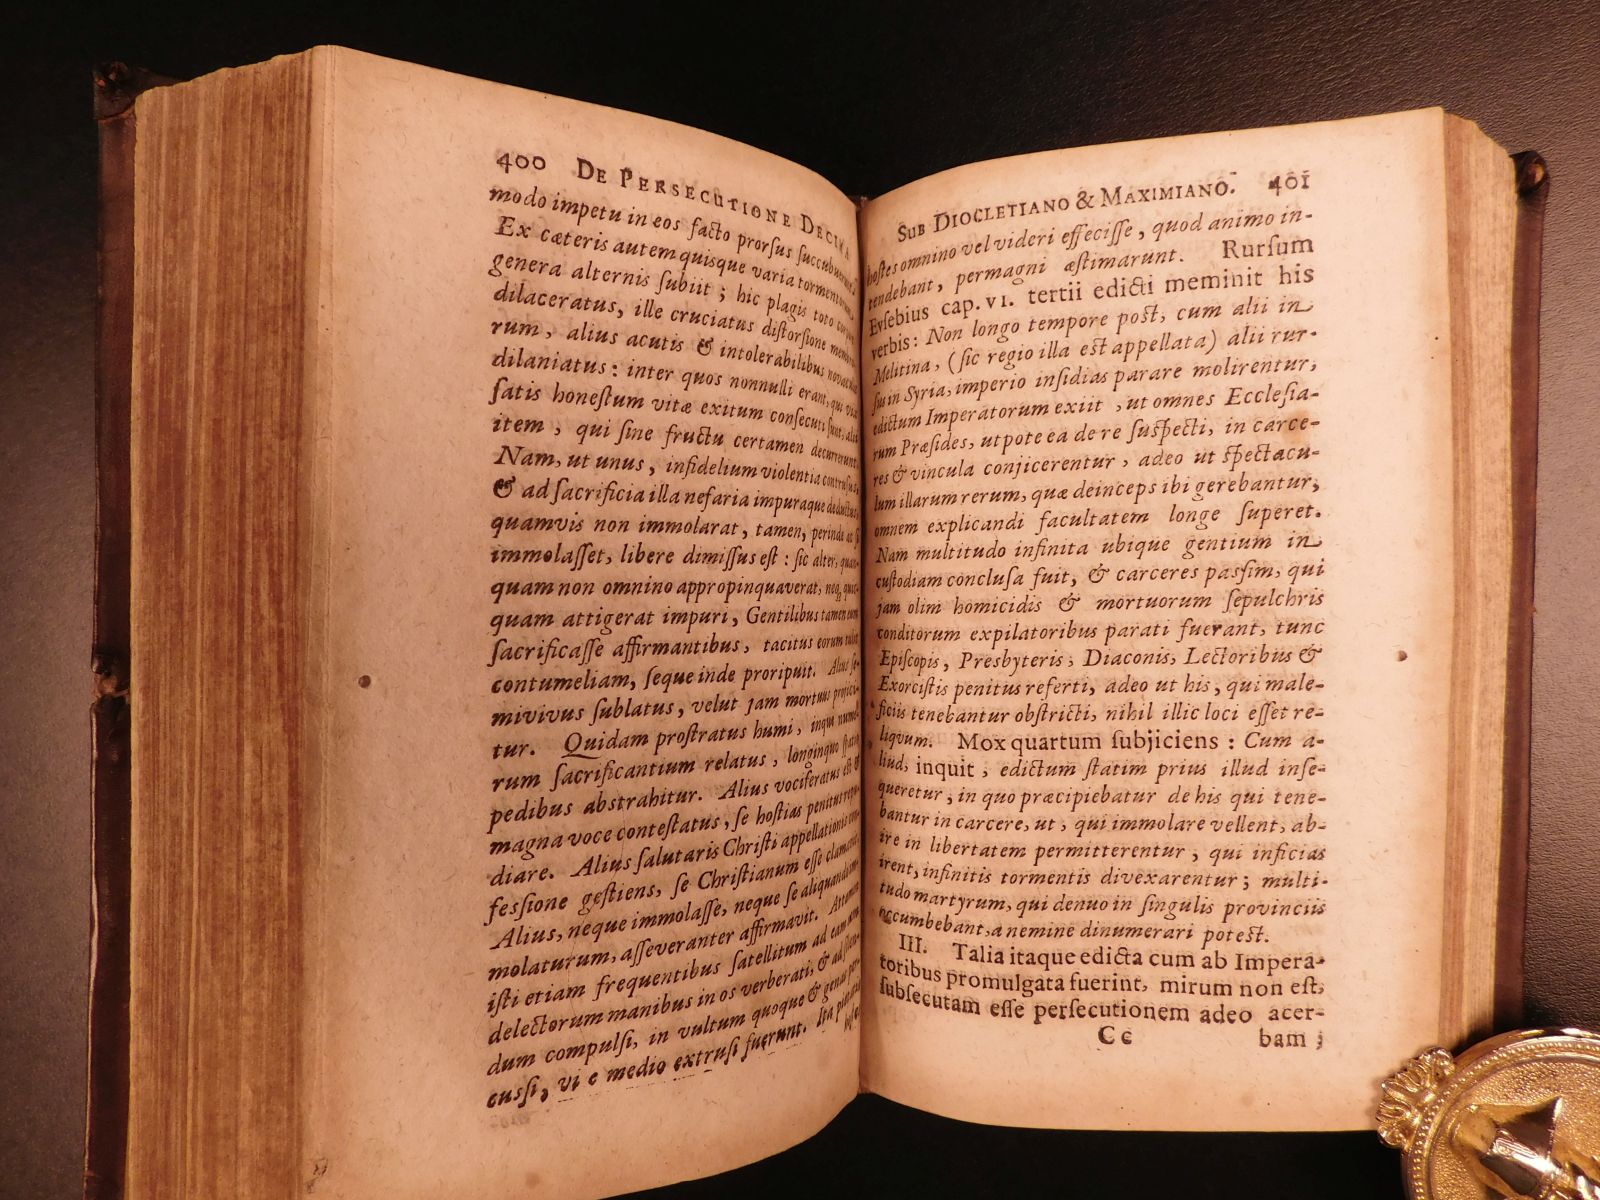 400 DE PERSECUTIONE DECIMA
modo impetu in eos facto prorſus ſuccubuerunt.
Ex cæteris autem quisque varia tormentorum
genera alternis ſubiit ; hic plagis toto corpore
dilaceratus, ille cruciatus diſtorſione membro-
rum, alius acutis & intolerabilibus novaculis
dilaniatus : inter quos nonnulli erant, qui vix
ſatis honeſtum vitæ exitum conſecuti ſunt, alii
item, qui ſine fructu certamen decurrerunt.
Nam, ut unus, infidelium violentia contruſus,
& ad ſacrificia illa nefaria impuraque deductus,
quamvis non immolarat, tamen, perinde ac ſi
immolaſſet, libere dimiſſus eſt : ſic alter, quan-
quam non omnino appropinquaverat, neq; quic-
quam attigerat impuri, Gentilibus tamen eum
ſacrificaſſe affirmantibus, tacitus eorum tulit
contumeliam, ſeque inde proripuit. Alius ſe-
mivivus ſublatus, velut jam mortuus projici-
tur. Quidam proſtratus humi, inque nume-
rum ſacrificantium relatus, longinquo ſpatio
pedibus abstrahitur. Alius vociferatus est &
magna voce conteſtatus, ſe hoſtias penitus repu-
diare. Alius ſalutaris Chriſti appellationis con-
feſſione geſtiens, ſe Chriſtianum eſſe clamavit.
Alius, neque immolaſſe, neque ſe aliquando im-
molaturum, aſſeveranter affirmavit. Attamen
iſti etiam frequentibus ſatellitum ad eam rem
delectorum manibus in os verberati, & ad ſilen-
dum compulſi, in vultum quoque & genas per-
cuſſi, vi e medio extruſi fuerunt. Ita pietatis
hoſtes
SUB DIOCLETIANO & MAXIMIANO. 401
hoſtes omnino vel videri effeciſſe, quod animo in-
tendebant, permagni æſtimarunt. Rurſum
Euſebius cap. VI. tertii edicti meminit his
verbis : Non longo tempore poſt, cum alii in
Melitina, (ſic regio illa eſt appellata) alii rur-
ſus in Syria, imperio inſidias parare molirentur,
edictum Imperatorum exiit, ut omnes Eccleſia-
rum Præſides, utpote ea de re ſuſpecti, in carce-
res & vincula conjicerentur, adeo ut ſpectacu-
lum illarum rerum, quæ deinceps ibi gerebantur,
omnem explicandi facultatem longe ſuperet.
Nam multitudo infinita ubique gentium in
cuſtodiam concluſa fuit, & carceres paſſim, qui
jam olim homicidis & mortuorum ſepulchris
conditorum expilatoribus parati fuerant, tunc
Epiſcopis, Presbyteris, Diaconis, Lectoribus &
Exorciſtis penitus referti, adeo ut his, qui male-
ficiis tenebantur obſtricti, nihil illic loci eſſet re-
liqvum. Mox quartum ſubjiciens : Cum a-
liud, inquit, edictum ſtatim prius illud inſe-
queretur, in quo præcipiebatur de his qui tene-
bantur in carcere, ut, qui immolare vellent, ab-
ire in libertatem permitterentur, qui inficias
irent, infinitis tormentis divexarentur ; multi-
tudo martyrum, qui denuo in ſingulis provinciis
occumbebant, a nemine dinumerari poteſt.
III. Talia itaque edicta cum ab Impera-
toribus promulgata fuerint, mirum non eſt,
ſubſecutam eſſe perſecutionem adeo acer-
Cc bam ;